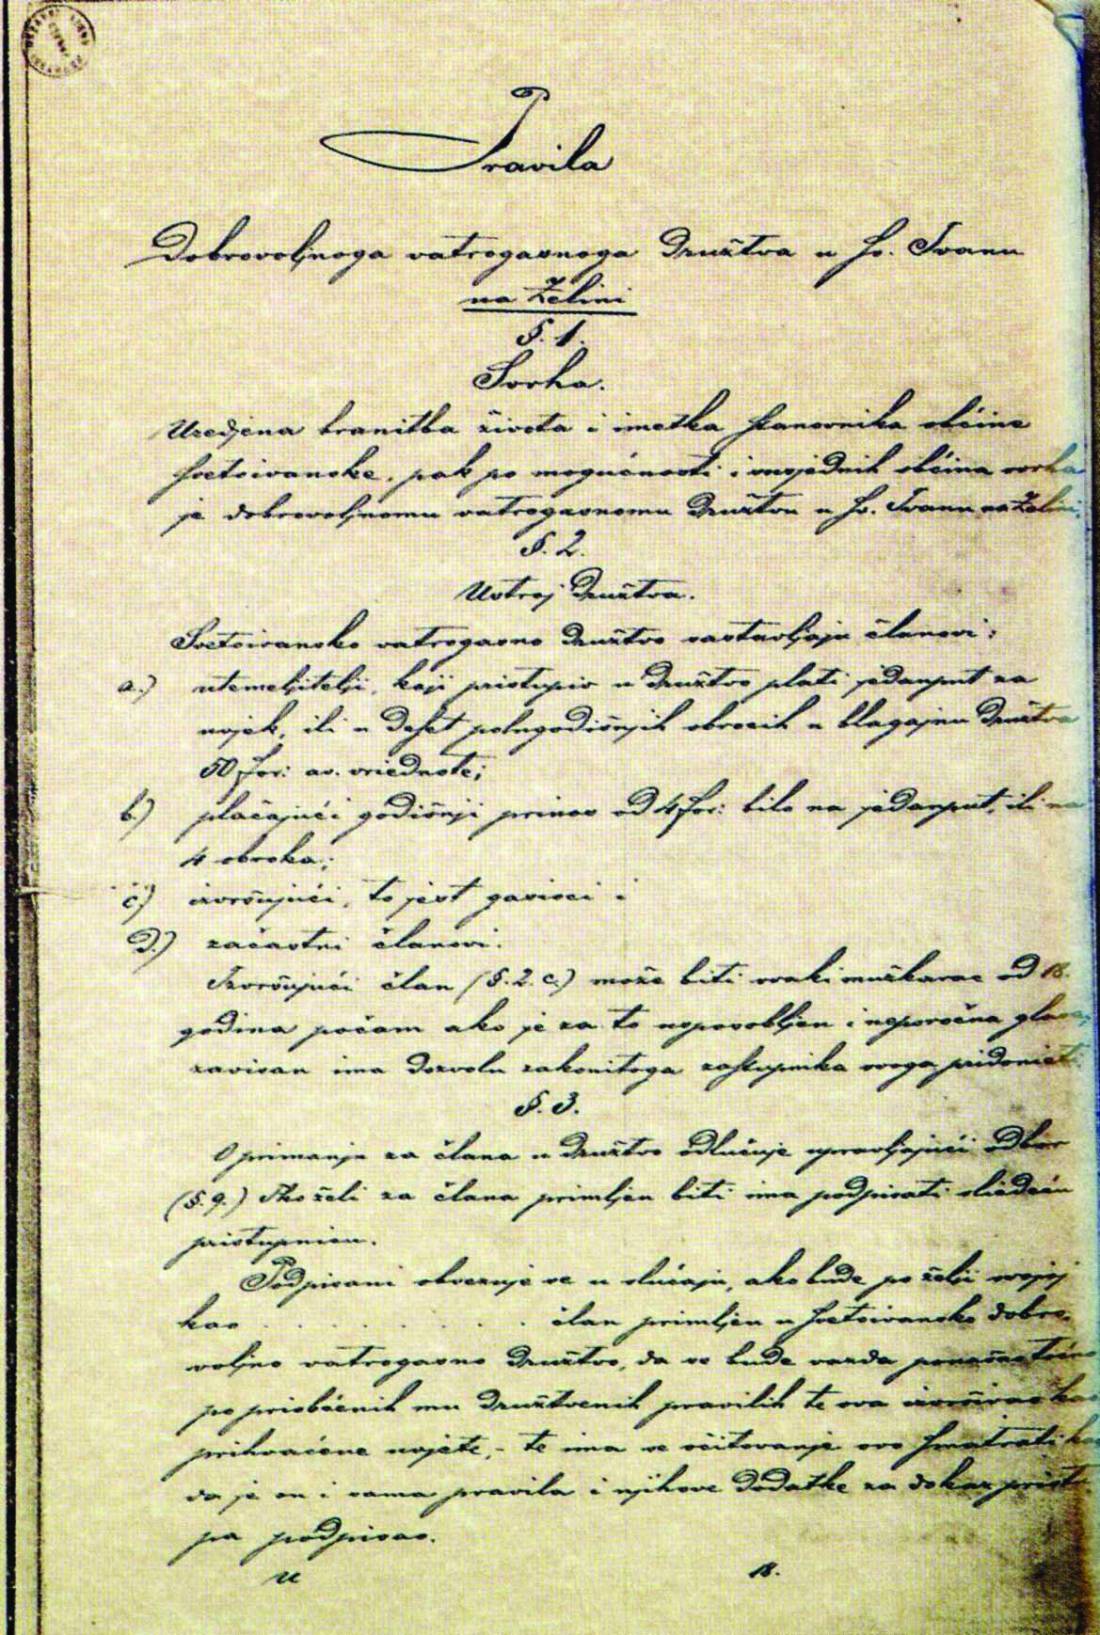 Pravila
Dobrovoljnoga vatrogasnoga družtva u Sv. Ivanu
na Zelini
§. 1.
Svrha.
Uredjena branitba života i imetka stanovnika obćine
svetoivanske, pak po mogućnosti i susjednih obćina svrha
je dobrovoljnomu vatrogasnomu družtvu u Sv. Ivanu na Zelini.
§. 2.
Ustroj družtva.
Svetoivansko vatrogasno družtvo sastavljaju članovi:
a.) utemeljitelji, koji pristupiv u družtvo plati jedanput za
uvjek, ili u deset polugodišnjih obrocih u blagajnu družtva
50 for: av. vriednote;
b) plaćajući godišnji prinos od 4 for: bilo na jedanput, ili na
4 obroka;
c) izvršujući, to jest gasioci i
d.) začastni članovi.
Izvršujući član (§. 2. c.) može biti svaki mužkarac od 18.
godina počam ako je za to usposobljen i neporočna glasa,
zavisan ima dozvolu zakonitoga zastupnika svoga pridonieti.
§. 3.
O primanju za člana u družtvo odlučuje upravljajući odbor
(§. 9.) Tko želi za člana primljen biti ima podpisati sliedeću
pristupnicu.
Podpisani obvezuje se u slučaju, ako bude po želji svojoj
kao . . . . . . . član primljen u svetoivansko dobro-
voljno vatrogasno družtvo, da se bude vazda
po priobćenih mu družtvenih pravilih te sva
prihvaćene uvjete, - te ima se očitovanje ovo smatrati kao
da je on i sama pravila i njihove dodatke za dokaz pristu-
pa podpisao.
U 18.